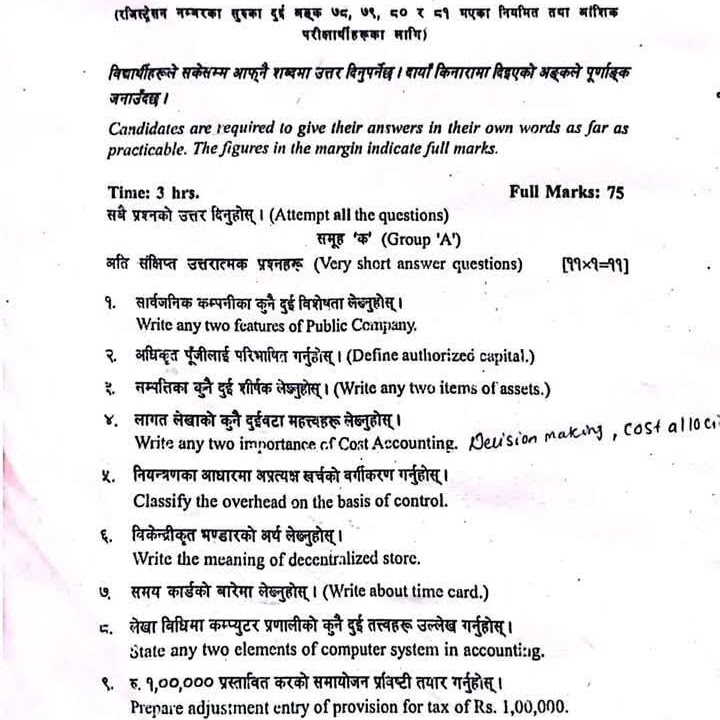 (रजिस्ट्रेसन नम्बरका सुरुका दुई अङ्क ७८, ७९, ८० र ८१ भएका नियमित तथा आंशिक
परीक्षार्थीहरूका लागि)
विद्यार्थीहरूले सकेसम्म आफ्नै शब्दमा उत्तर दिनुपर्नेछ । दायाँ किनारामा दिइएको अङ्कले पूर्णाङ्क
जनाउँदछ ।
Candidates are required to give their answers in their own words as far as
practicable. The figures in the margin indicate full marks.
Time: 3 hrs. Full Marks: 75
सबै प्रश्नको उत्तर दिनुहोस् । (Attempt all the questions)
समूह 'क' (Group 'A')
अति संक्षिप्त उत्तरात्मक प्रश्नहरू (Very short answer questions) [११×१=११]
१. सार्वजनिक कम्पनीका कुनै दुई विशेषता लेख्नुहोस् ।
Write any two features of Public Company.
२. अधिकृत पूँजीलाई परिभाषित गर्नुहोस् । (Define authorized capital.)
३. सम्पत्तिका कुनै दुई शीर्षक लेख्नुहोस् । (Write any two items of assets.)
४. लागत लेखाको कुनै दुईवटा महत्त्वहरू लेख्नुहोस् ।
Write any two importance of Cost Accounting. Decision making, cost alloc
५. नियन्त्रणका आधारमा अप्रत्यक्ष खर्चको वर्गीकरण गर्नुहोस् ।
Classify the overhead on the basis of control.
६. विकेन्द्रीकृत भण्डारको अर्थ लेख्नुहोस् ।
Write the meaning of decentralized store.
७. समय कार्डको बारेमा लेख्नुहोस् । (Write about time card.)
८. लेखा विधिमा कम्प्युटर प्रणालीको कुनै दुई तत्त्वहरू उल्लेख गर्नुहोस् ।
State any two elements of computer system in accounting.
९. रु. १,००,००० प्रस्तावित करको समायोजन प्रविष्टी तयार गर्नुहोस् ।
Prepare adjustment entry of provision for tax of Rs. 1,00,000.